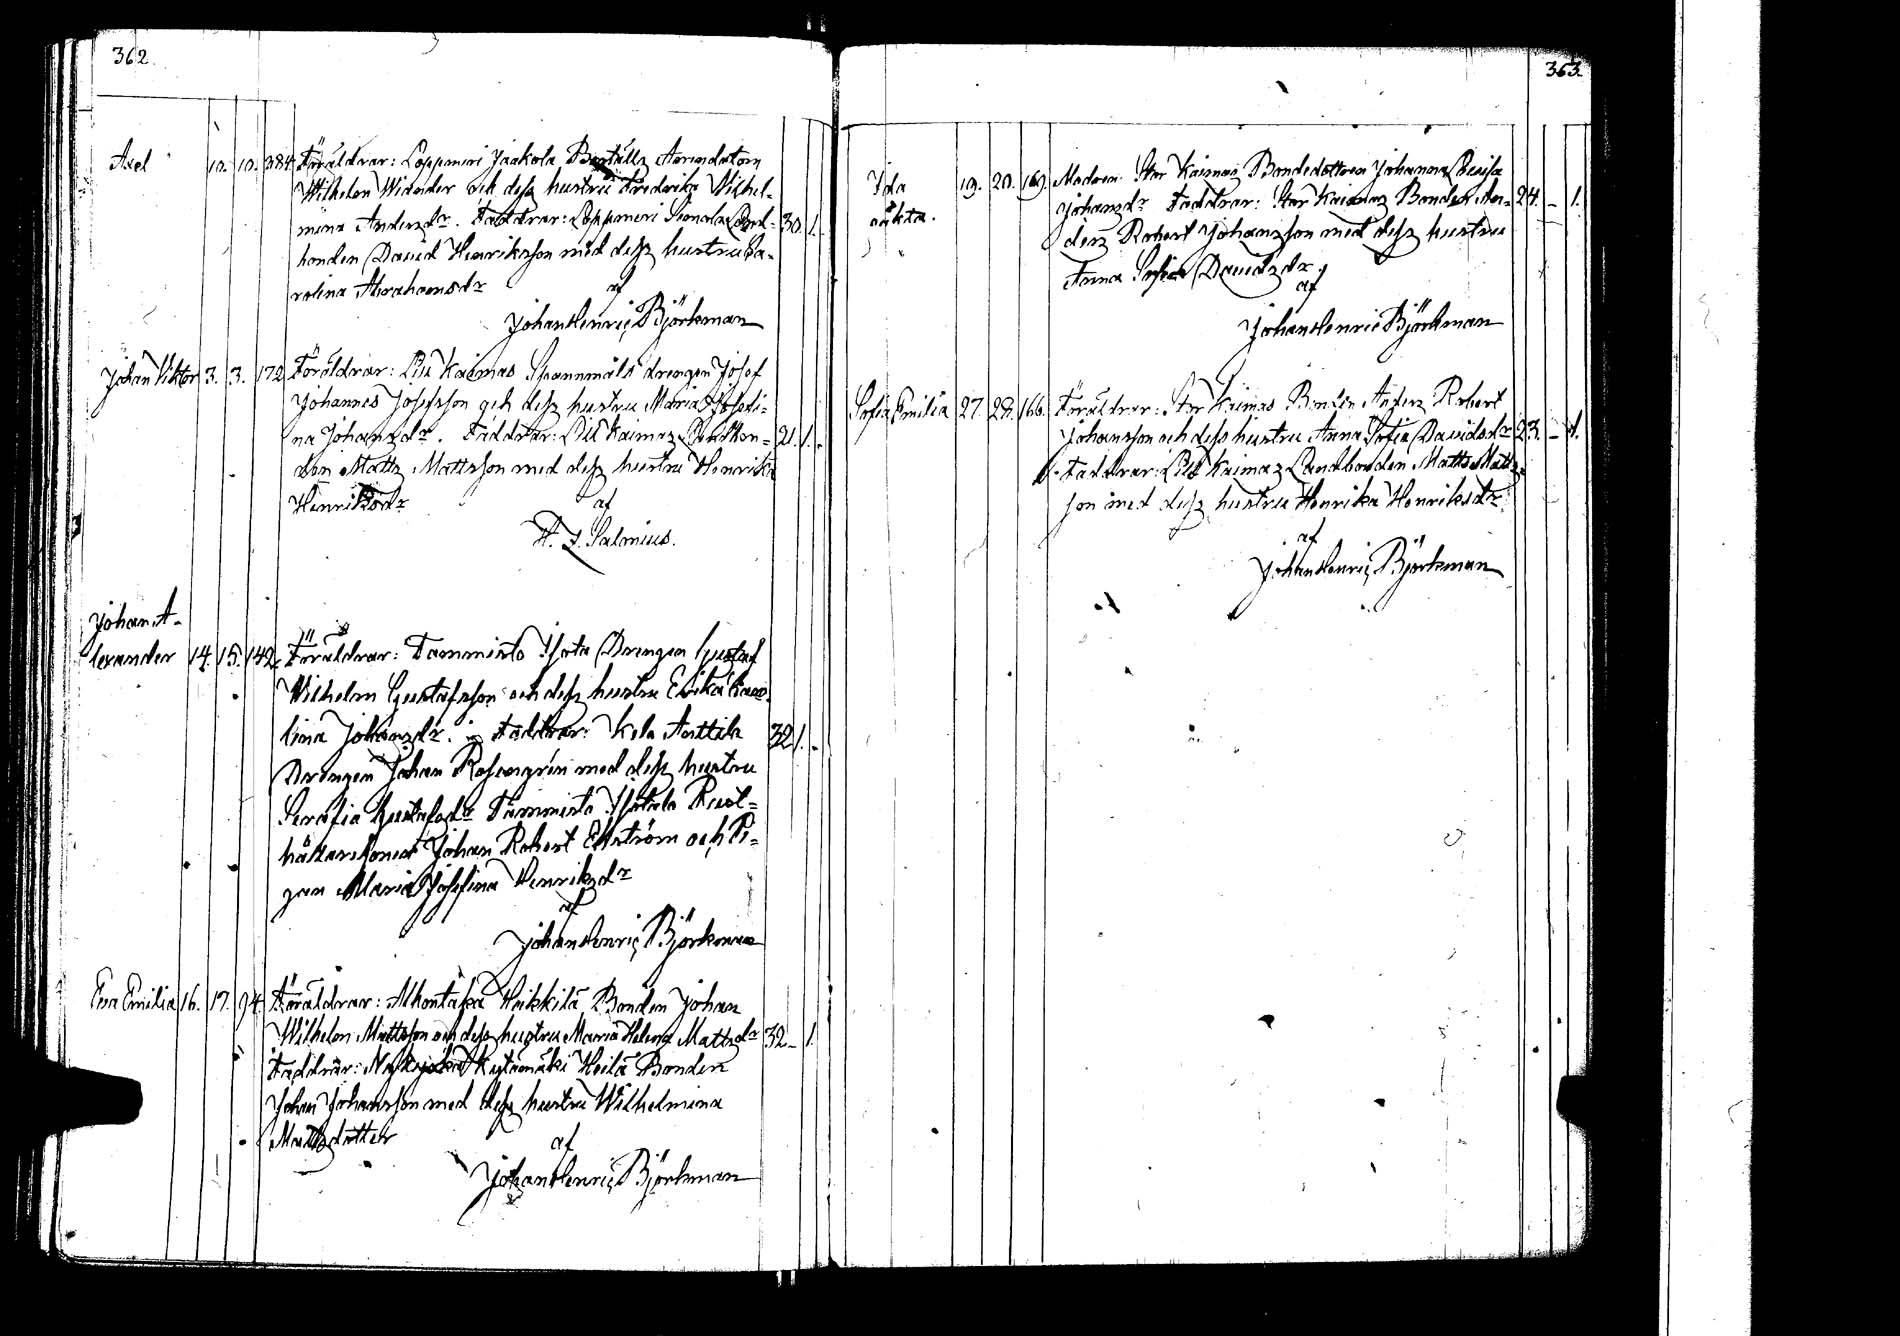 362
Axel 10. 10. 384 Föräldrar: Loppmeri Jaakola Boställs Arrendatorn
Wilhelm Widender och dess hustru Fredrika Vilhel-
mina Andersdr. Faddrar: Loppmeri Simola Land- 30. 1.
bonden David Henriksson med dess hustru Ca-
rolina Abrahamsdr
af
Johan Henric Björkman
Johan Viktor 3. 3. 172 Föräldrar: Lill Kaimas Spannmåls drengen Josef
Johannes Josefsson och dess hustru Maria Josefi-
na Johansdr. Faddrar: Lill Kaimas Landbon= 21. 1.
den Matts Mattsson med dess hustru Henrika
Henriksdr
af
H. J. Salmius.
Johan A-
lexander 14. 15. 142. Föräldrar: Tammisto Drengen Gustaf
Wilhelm Gustafsson och dess hustru Erika Caro
lina Johansdr. Faddrar: Kola Anttila 32 1.
Drengen Johan Rosengrén med dess hustru
Serafia Gustafsdr Tammisto Rust=
hållaresonen Johan Robert Ekström och Pi=
gan Maria Josefina Henriksdr
af
Johan Henric Björkman
Eva Emilia 16. 17. 94. Föräldrar: Alhontaka Heikkilä Bonden Johan
Wilhelm Mattsson och dess hustru Maria Helena Mattsdr 32 - 1.
Faddrar: Kytömäki Heilä Bonden
Johan Johansson med dess hustru Wilhelmina
Mattsdotter
af
Johan Henric Björkman
363.
Ida 19. 20. 169. Modren: Stor Kaimas Bondedottren Johanna Lovisa
oäkta. Johansdr Faddrar: Stor Kaimas Bonden An- 24. - 1.
ders Robert Johansson med dess hustru
Anna Sofia Davidsdr
af
Johan Henric Björkman
Sofia Emilia 27. 28. 166. Föräldrar: Stor Kaimas Bonden Anders Robert
Johansson och dess hustru Anna Sofia Davidsdr 23. - 1.
Faddrar: Lill Kaimas Landbonden Matts Matts=
son med dess hustru Henrika Henriksdr
af
Johan Henric Björkman